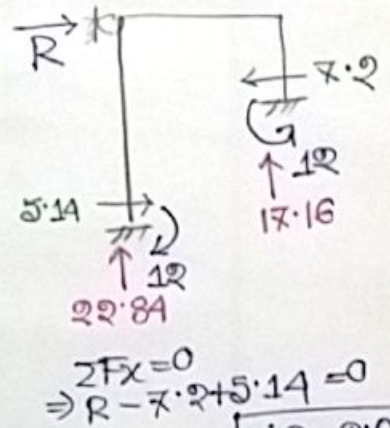 R
7.2
12
17.16
5.14
12
22.84
ΣFx=0
⇒ R - 7.2 + 5.14 = 0